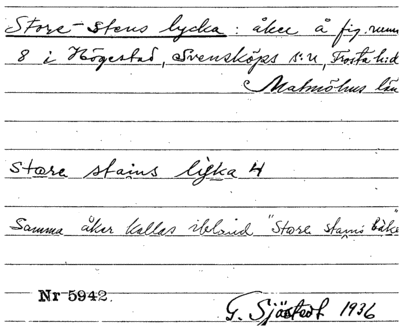 Store-stens lycka: åker å fig. num
8 i Högestad, Svensköps s:n, Frosta h:d
Malmöhus län
Store stains lykka 4
Samma åker kallas ibland "Store stains bäke
Nr 5942.
G. Sjöstedt 1936